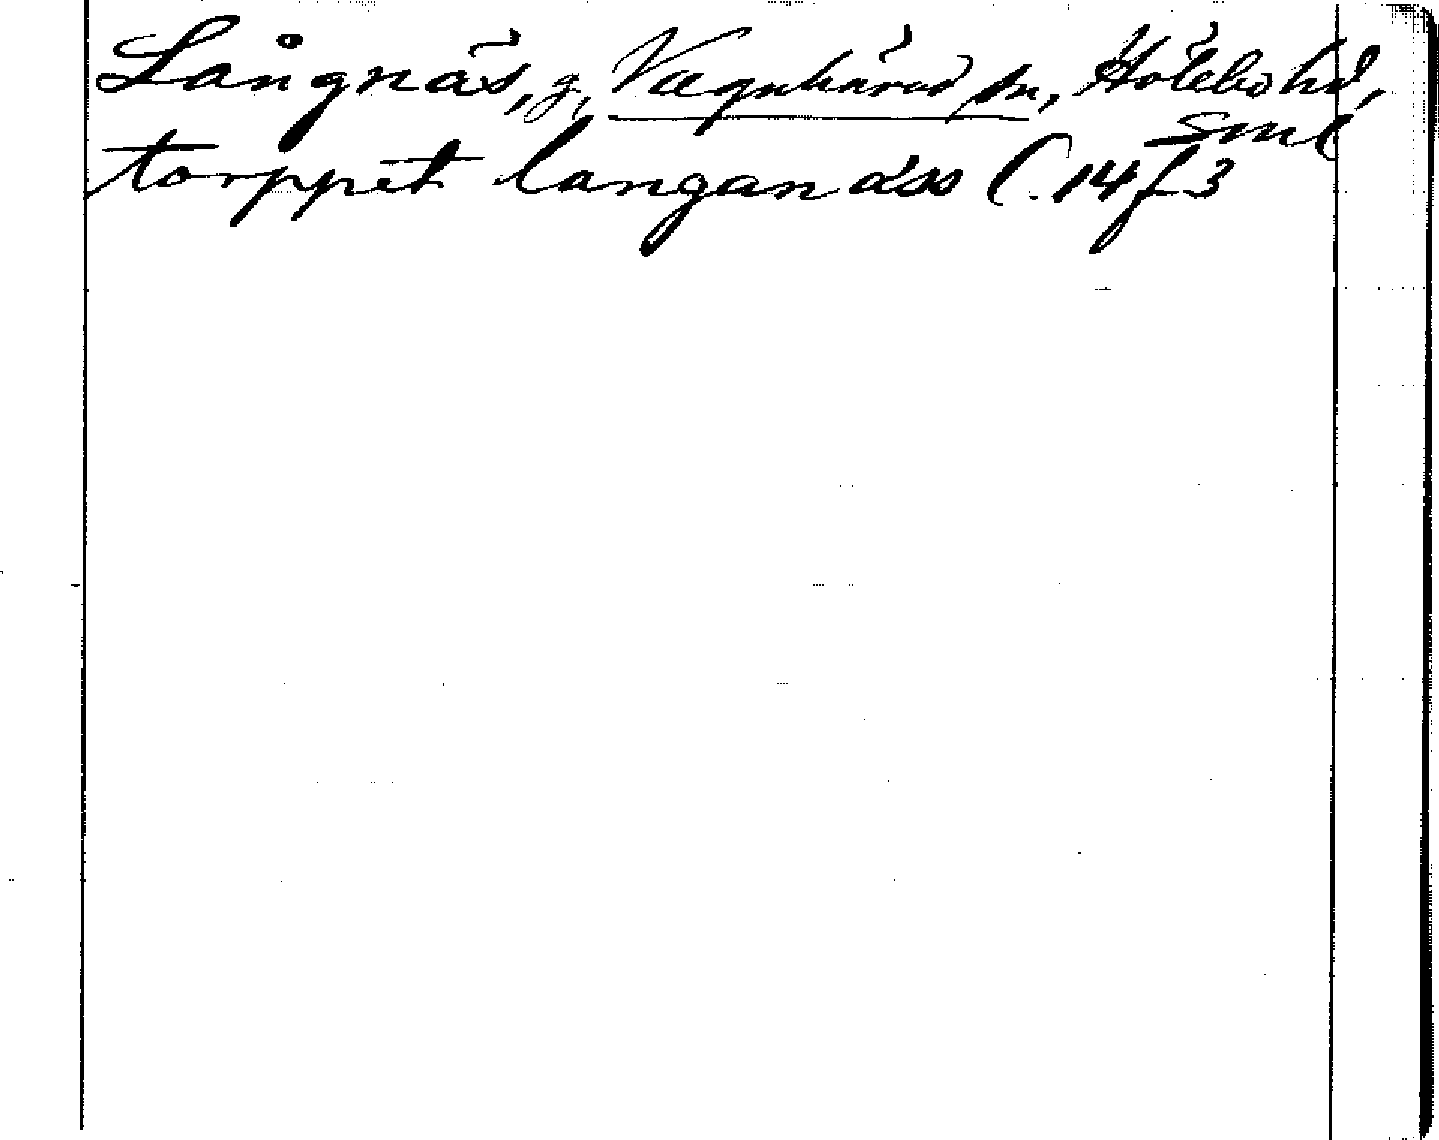 Långnäs, g, Vagnhärad sn, Hölebo hd,
Sml
torppet langanäss C. 14 f 3